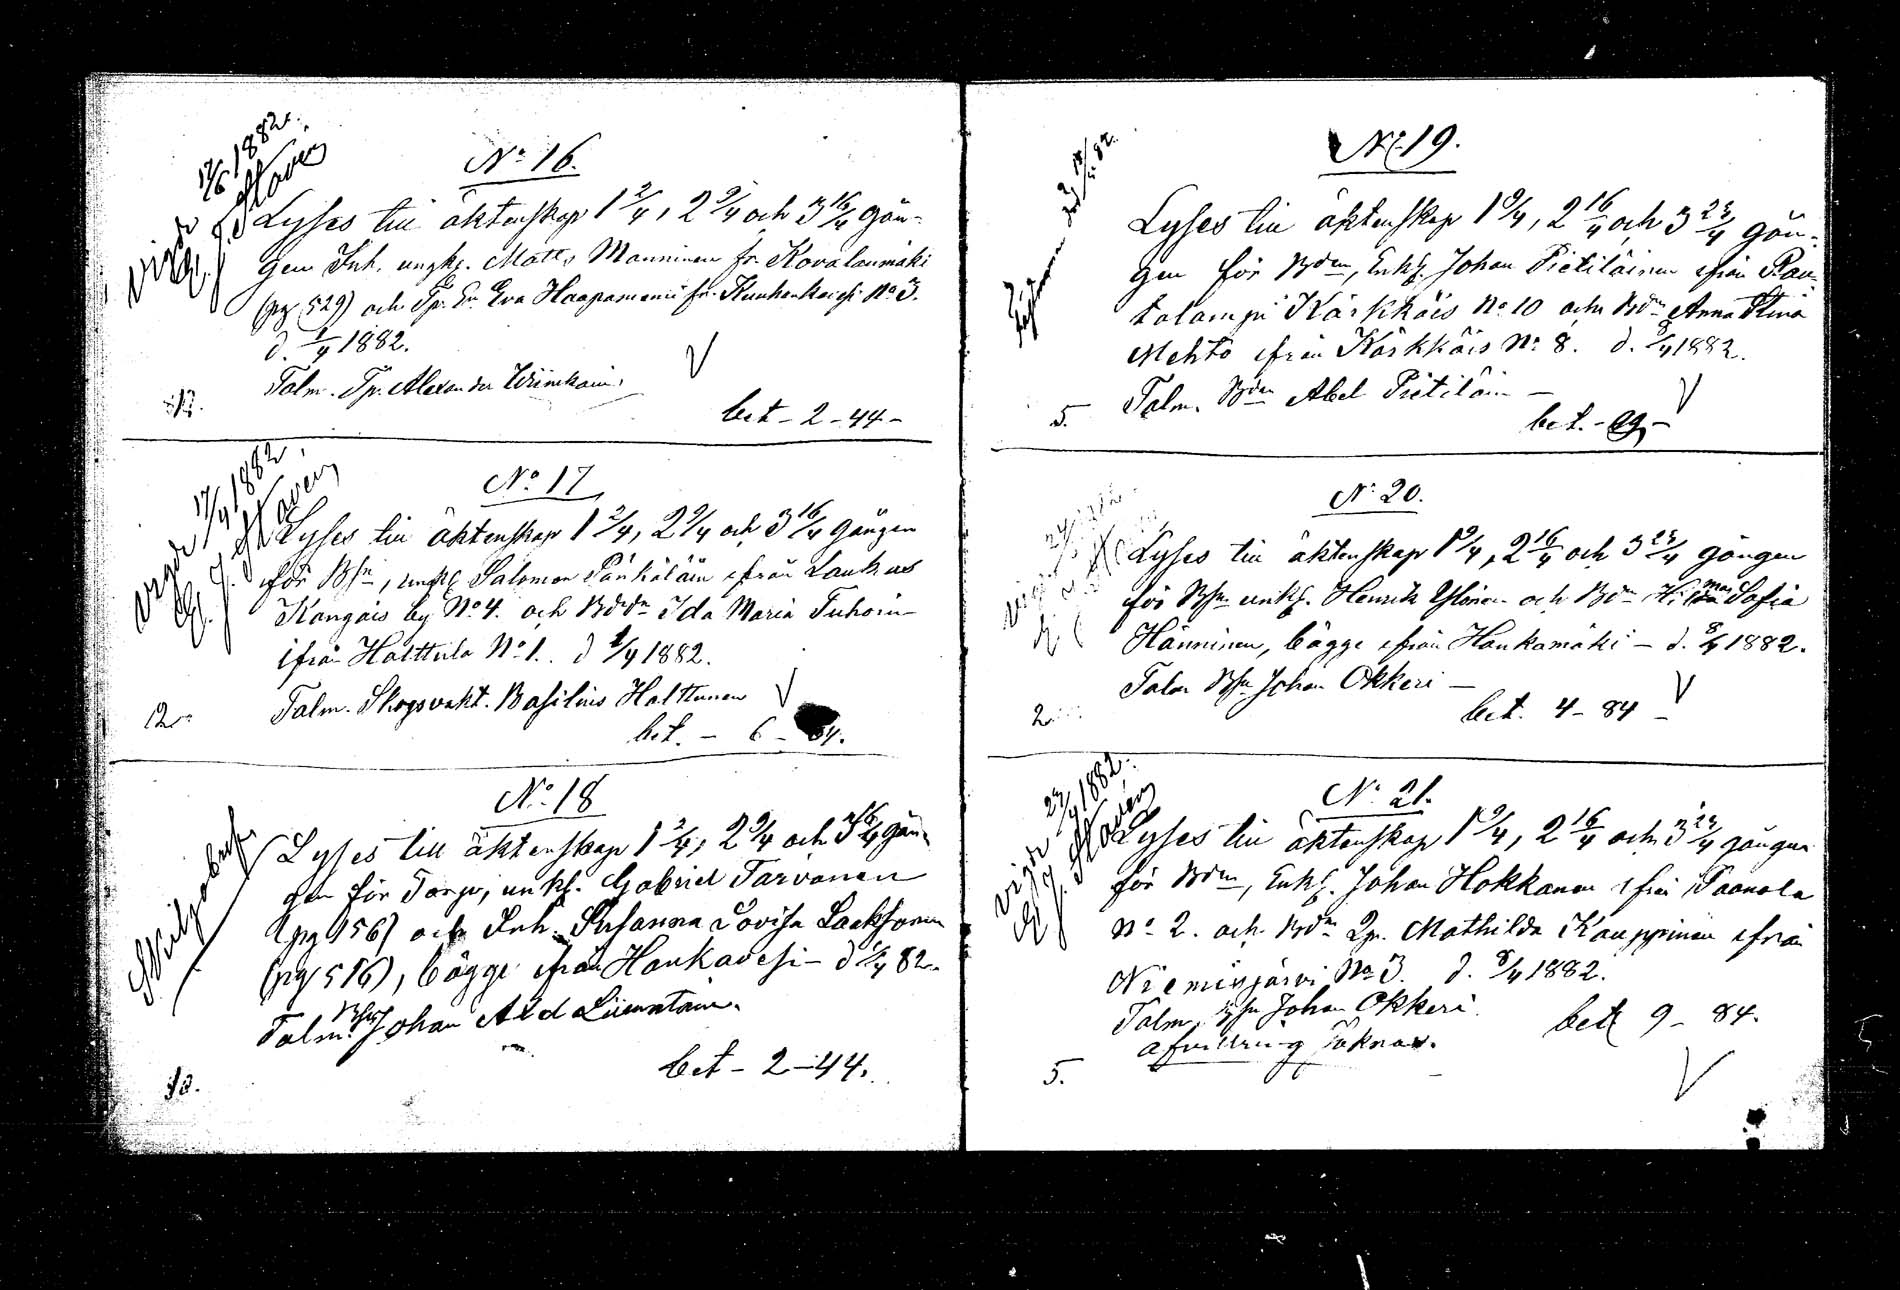 No 16.
vigde 17/6 1882.
Lyses till äktenskap 1 2/4, 2 9/4 och 3 16/4 gån-
gen Inh. ungk. Matts Manninen fr. Kovalanmäki
(pg 529) och Tp. En Eva Haapaniemi fr. Kuuhankavesi No 3.
d. 1/4 1882.
Talm. Tp. Alexander
bet - 2 - 44 -
No 17
vigde 17/4 1882.
Lyses till äktenskap 1 2/4, 2 9/4 och 3 16/4 gången
för Bsn, unk. Salomon från Laukas
Kangais by No 4. och Bdrdn Ida Maria Tuhoin
ifrån Halttula No 1. d 1/4 1882.
Talm. Skogsvakt. Basilius Halttunen
12
bet. - 6 - 84.
No 18
Lyses till äktenskap 1 2/4, 2 9/4 och 3 16/4 gån-
gen för Torp, unk. Gabriel Tarvanen
(pg 156) och Inh. Susanna Lovisa Lacksonen
(pg 516), bägge ifrån Hankavesi - d 1/4 82.
Talm. Bsn Johan Ald Liimatain.
bet - 2 - 44.
No 19.
Lyses till äktenskap 1 9/4, 2 16/4 och 3 23/4 gån-
gen för Bdn, Enk. Johan Pietiläinen ifrån Rau-
talampi Kärkkäis No 10 och Bdn Anna Stina
Mehto ifrån Kärkkäis No 8. d. 8/4 1882.
Talm. Bdn Abel Pietiläin -
5.
bet. -
No 20.
Lyses till äktenskap 1 9/4, 2 16/4 och 3 23/4 gången
för Bsn unk. Henrik Ylönen och Bdn Hilma Sofia
Hänninen, bägge ifrån Hankamäki - d. 8/4 1882.
Talm Bsn Johan Okkeri -
2
bet. 4 - 84 -
No 21.
vigde 23/4 1882.
Lyses till äktenskap 1 9/4, 2 16/4 och 3 23/4 gången
för Bdn, Enk. Johan Hokkanen ifrån Paanala
No 2. och Bdn Qp. Mathilda Kauppinen ifrån
Niemisjärvi No 3. d. 8/4 1882.
Talm. Bsn Johan Okkeri.
afvittring saknas.
bet 9 - 84.
5.